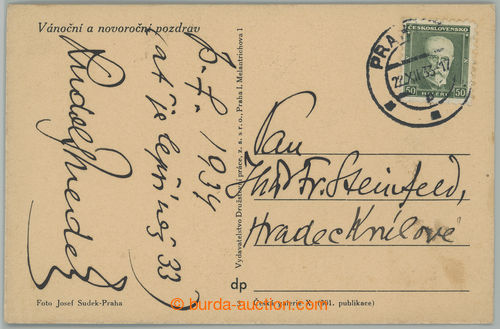 Vánoční a novoroční pozdrav
P. F. 1934
ať je lepší než 33
Rudolf Medek
Foto Josef Sudek-Praha
Vydavatelstvo Družstevní práce, z. s. s r. o., Praha I, Melantrichova 1
dp
Česká galerie X. (501. publikace)
ČESKOSLOVENSKO
50 HALÉŘŮ 50
PRAHA
22.XII.33-17
Pan
Fr. Steinfeld,
Hradec Králové
burda-auction.com